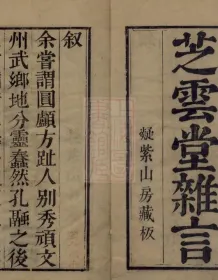 芝雲堂雜言
凝紫山房藏板
叙
余嘗謂圓顱方趾人别秀頑文
州武鄉地分靈蠢然孔融之後